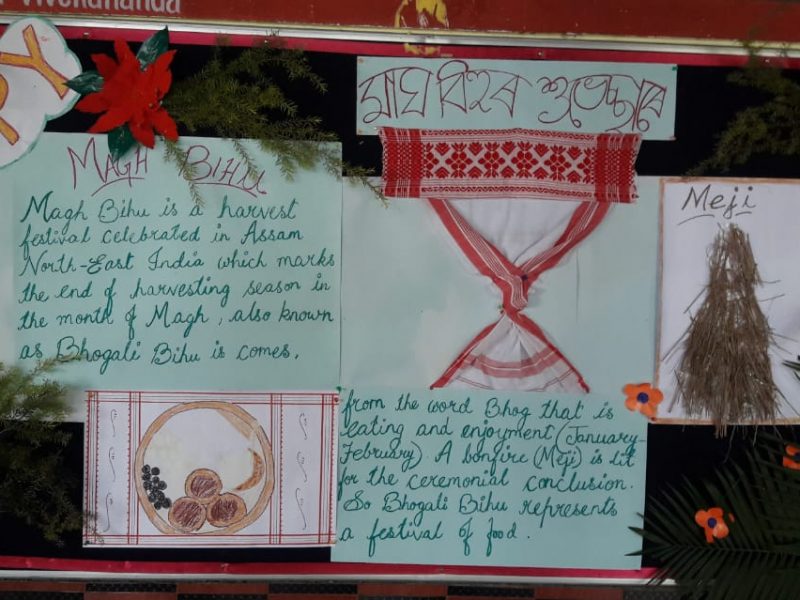 Vivekananda
PPY
মাঘ বিহুৰ শুভেচ্ছাৰে
MAGH BIHU
Magh Bihu is a harvest
festival celebrated in Assam
North-East India which marks
the end of harvesting season in
the month of Magh, also known
as Bhogali Bihu is comes,
from the word Bhog that is
eating and enjoyment (January-
February). A bonfire (Meji) is lit
for the ceremonial conclusion.
So Bhogali Bihu represents
a festival of food.
Meji